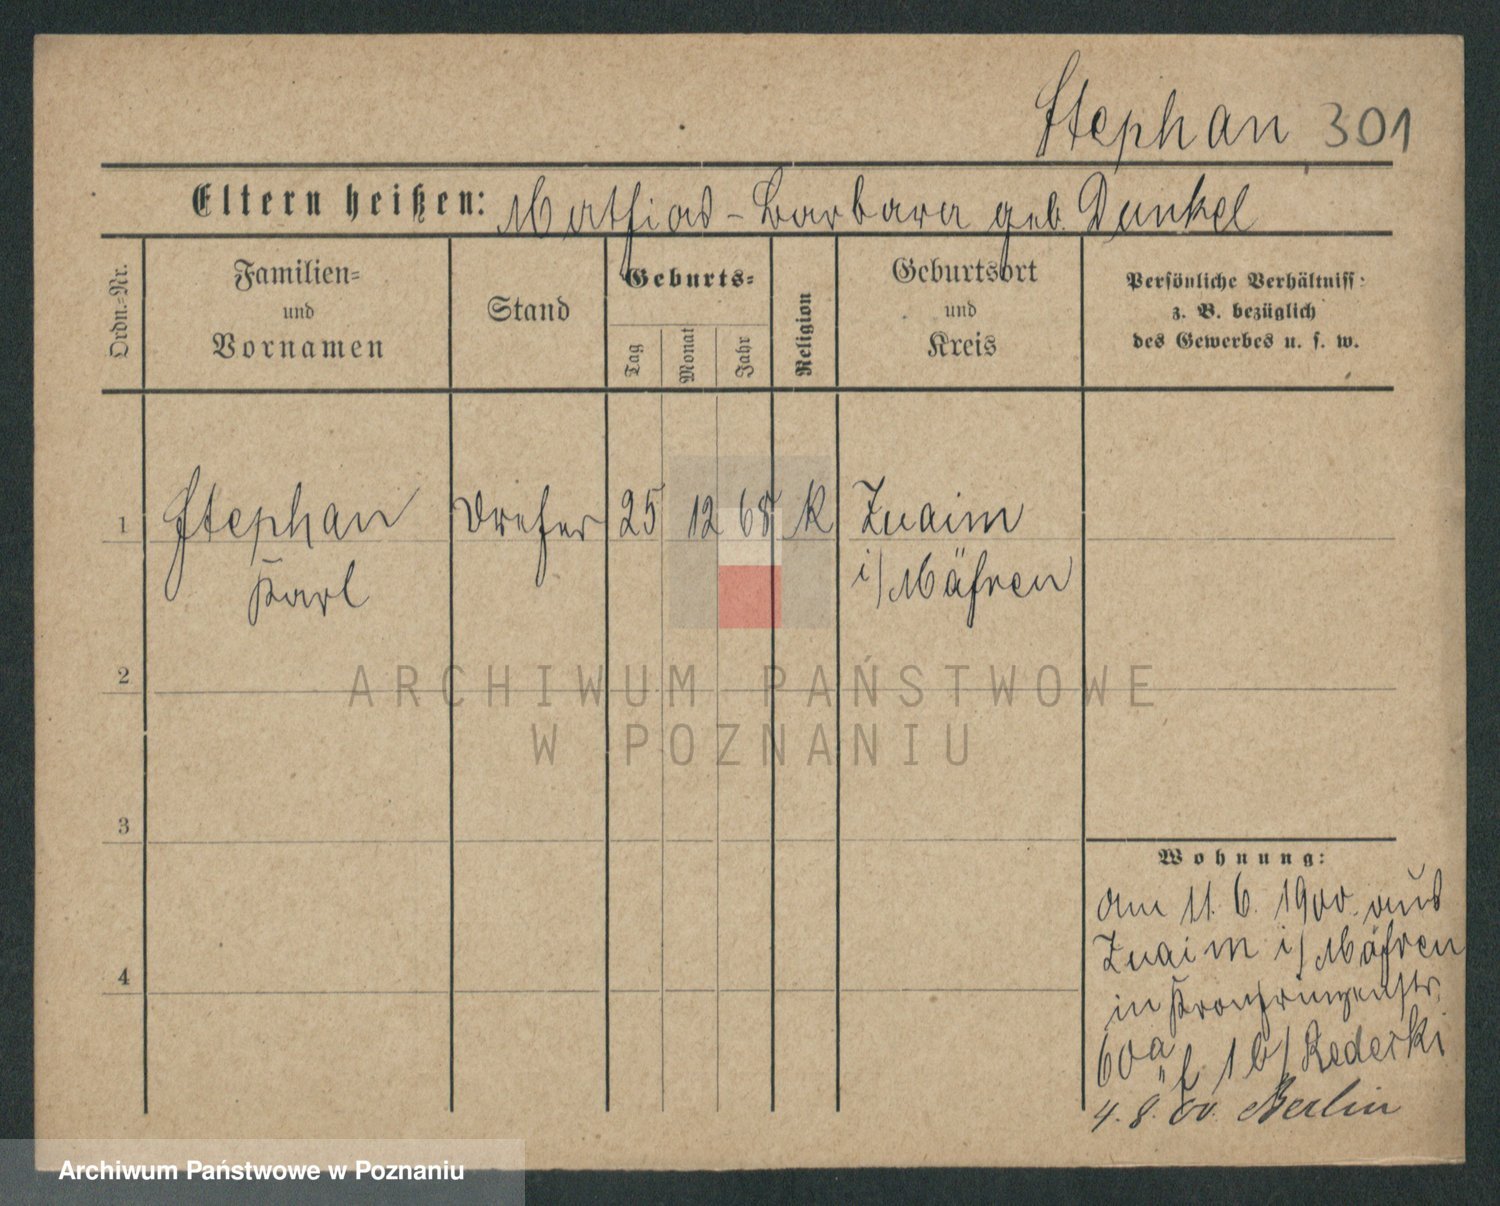 Stephan 301
Eltern heißen: Mathias - Barbara geb. Dunkel
Ordn.=Nr.
Familien=
und
Vornamen
Stand
Geburts=
Tag
Monat
Jahr
Religion
Geburtsort
und
Kreis
Persönliche Verhältniss:
z. B. bezüglich
des Gewerbes u. s. w.
1 Stephan Dreher 25 12 68 k Znaim
Karl i/Mähren
2
ARCHIWUM PAŃSTWOWE
W POZNANIU
3
Wohnung:
am 11. 6. 1900. aus
Znaim i/Mähren
4
in Kronprinzenstr.
60a 1 b/ Rederki
4. 8. 00. Berlin
Archiwum Państwowe w Poznaniu